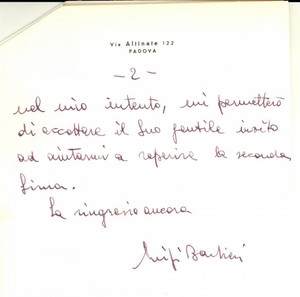 Via Altinate 122
PADOVA
- 2 -
nel mio intento, mi permetterò
di accettare il Suo gentile invito
ad aiutarmi a reperire la seconda
firma.
La ringrazio ancora
Luigi